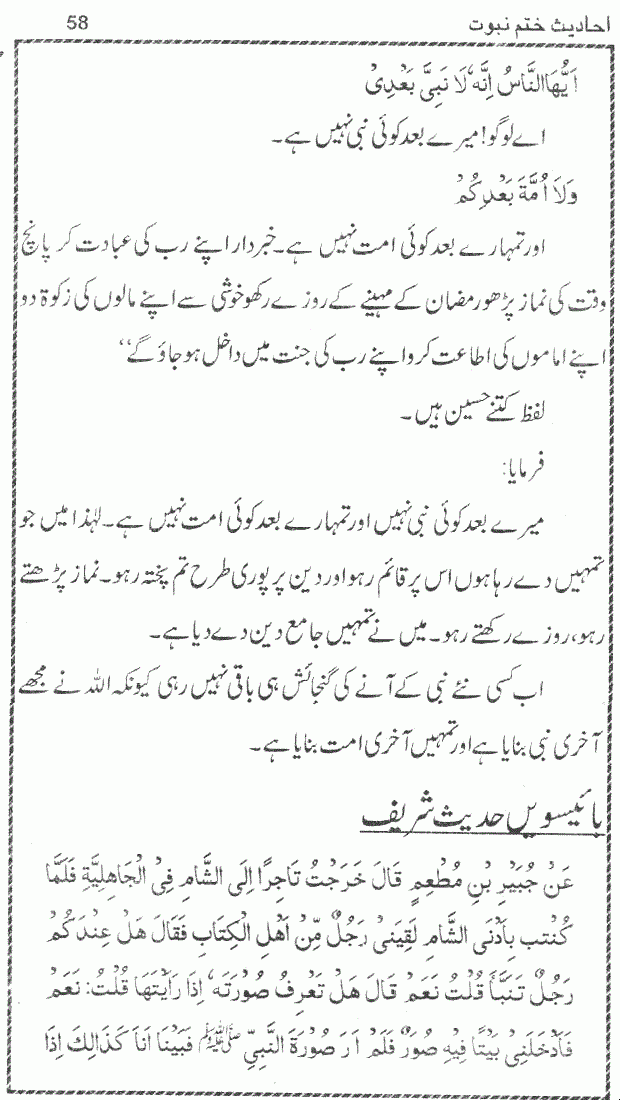 احادیث ختم نبوت 58
اَیُّهَاالنَّاسُ اِنَّهٗ لَا نَبِیَّ بَعْدِیْ
اے لوگو! میرے بعد کوئی نبی نہیں ہے۔
وَلَا اُمَّةَ بَعْدِكُمْ
اور تمہارے بعد کوئی امت نہیں ہے۔ خبردار اپنے رب کی عبادت کر پانچ
وقت کی نماز پڑھو رمضان کے مہینے کے روزے رکھو خوشی سے اپنے مالوں کی زکوۃ دو
اپنے اماموں کی اطاعت کرو اپنے رب کی جنت میں داخل ہو جاؤ گے‘‘
لفظ کتنے حسین ہیں۔
فرمایا:
میرے بعد کوئی نبی نہیں اور تمہارے بعد کوئی امت نہیں ہے۔ لہٰذا میں جو
تمہیں دے رہا ہوں اس پر قائم رہو اور دین پر پوری طرح تم پختہ رہو۔ نماز پڑھتے
رہو، روزے رکھتے رہو۔ میں نے تمہیں جامع دین دے دیا ہے۔
اب کسی نئے نبی کے آنے کی گنجائش ہی باقی نہیں رہی کیونکہ اللہ نے مجھے
آخری نبی بنایا ہے اور تمہیں آخری امت بنایا ہے۔
بائیسویں حدیث شریف
عَنْ جُبَیْرِ بْنِ مُطْعِمٍ قَالَ خَرَجْتُ تَاجِرًا اِلَی الشَّامِ فِی الْجَاهِلِیَّةِ فَلَمَّا
كُنْتب بِاَدْنَی الشَّامِ لَقِیَنِیْ رَجُلٌ مِّنْ اَهْلِ الْكِتَابِ فَقَالَ هَلْ عِنْدَكُمْ
رَجُلٌ تَنَبَّأَ قُلْتُ نَعَمْ قَالَ هَلْ تَعْرِفُ صُوْرَتَهٗ اِذَا رَاَیْتَهَا قُلْتُ: نَعَمْ
فَاَدْخَلَنِیْ بَیْتًا فِیْهِ صُوَرٌ فَلَمْ اَرَ صُوْرَةَ النَّبِیِّ ﷺ فَبَیْنَا اَنَا كَذَالِكَ اِذَا